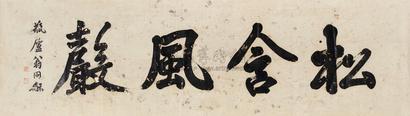 松含風嚴
瓶廬翁同龢